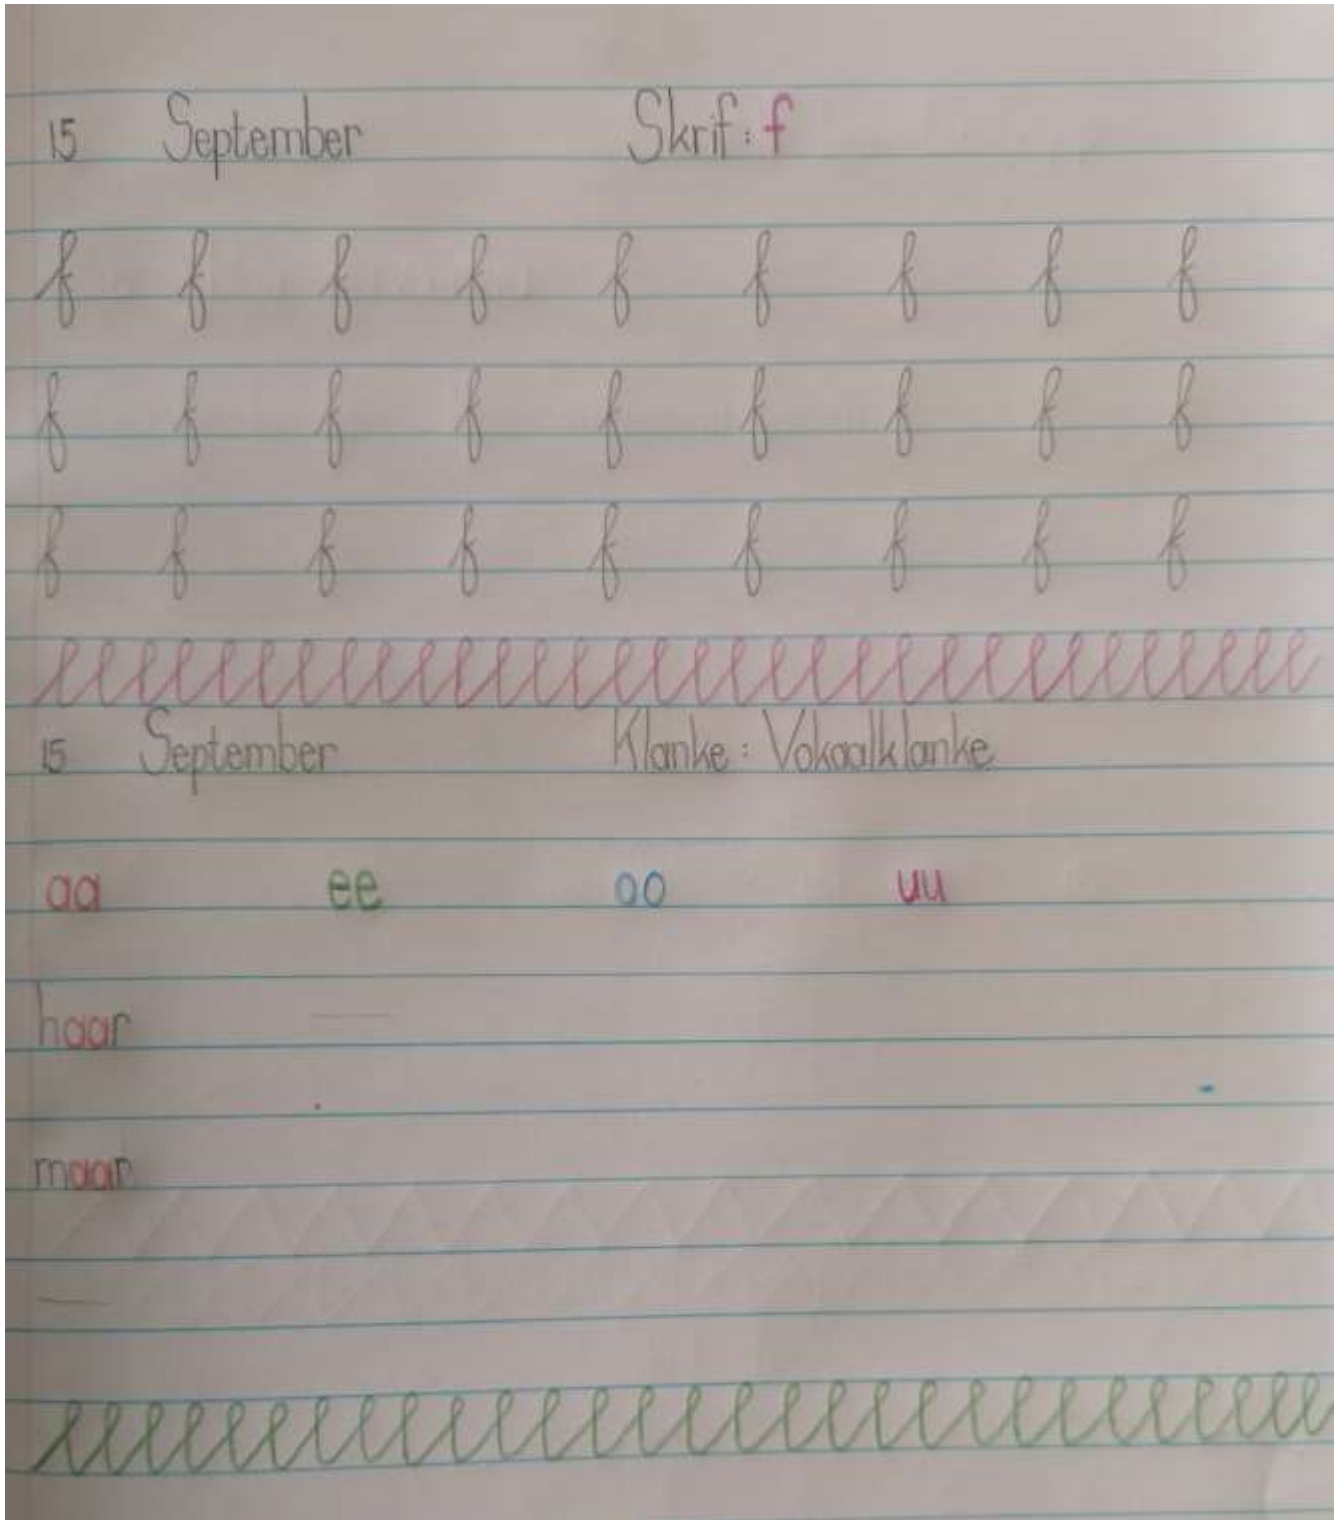 15 September Skrif: f
f f f f f f f f f
f f f f f f f f f
f f f f f f f f f
15 September Klanke: Vokaalklanke
aa ee oo uu
haar
maar